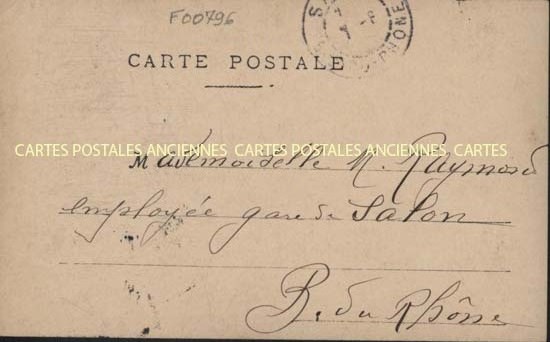 F00796
CARTE POSTALE
CARTES POSTALES ANCIENNES CARTES POSTALES ANCIENNES CARTES
Mademoiselle M. Raymond
employée gare de Salon
B. du Rhône